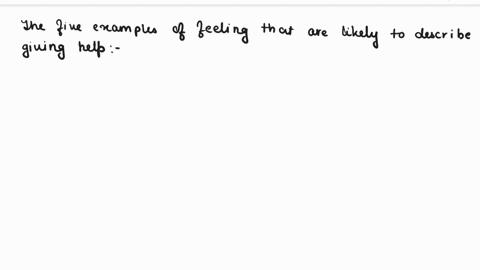 The five examples of feeling that are likely to describe
giving help:-